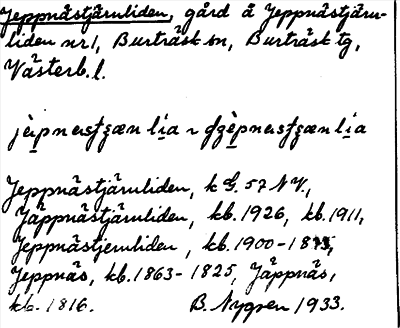 Jeppnästjärnliden, gård å Jeppnästjärn-
liden nr 1, Burträsk sn, Burträsk tg,
Västerb. l.
Jeppnästjärnliden, k G. 57 NV.,
Jäppnästjärnliden, kb. 1926, kb. 1911,
Jeppnästjernliden, kb. 1900-
Jeppnäs, kb. 1863-1825, Jäppnäs,
kb. 1816. B. Nygren 1933.